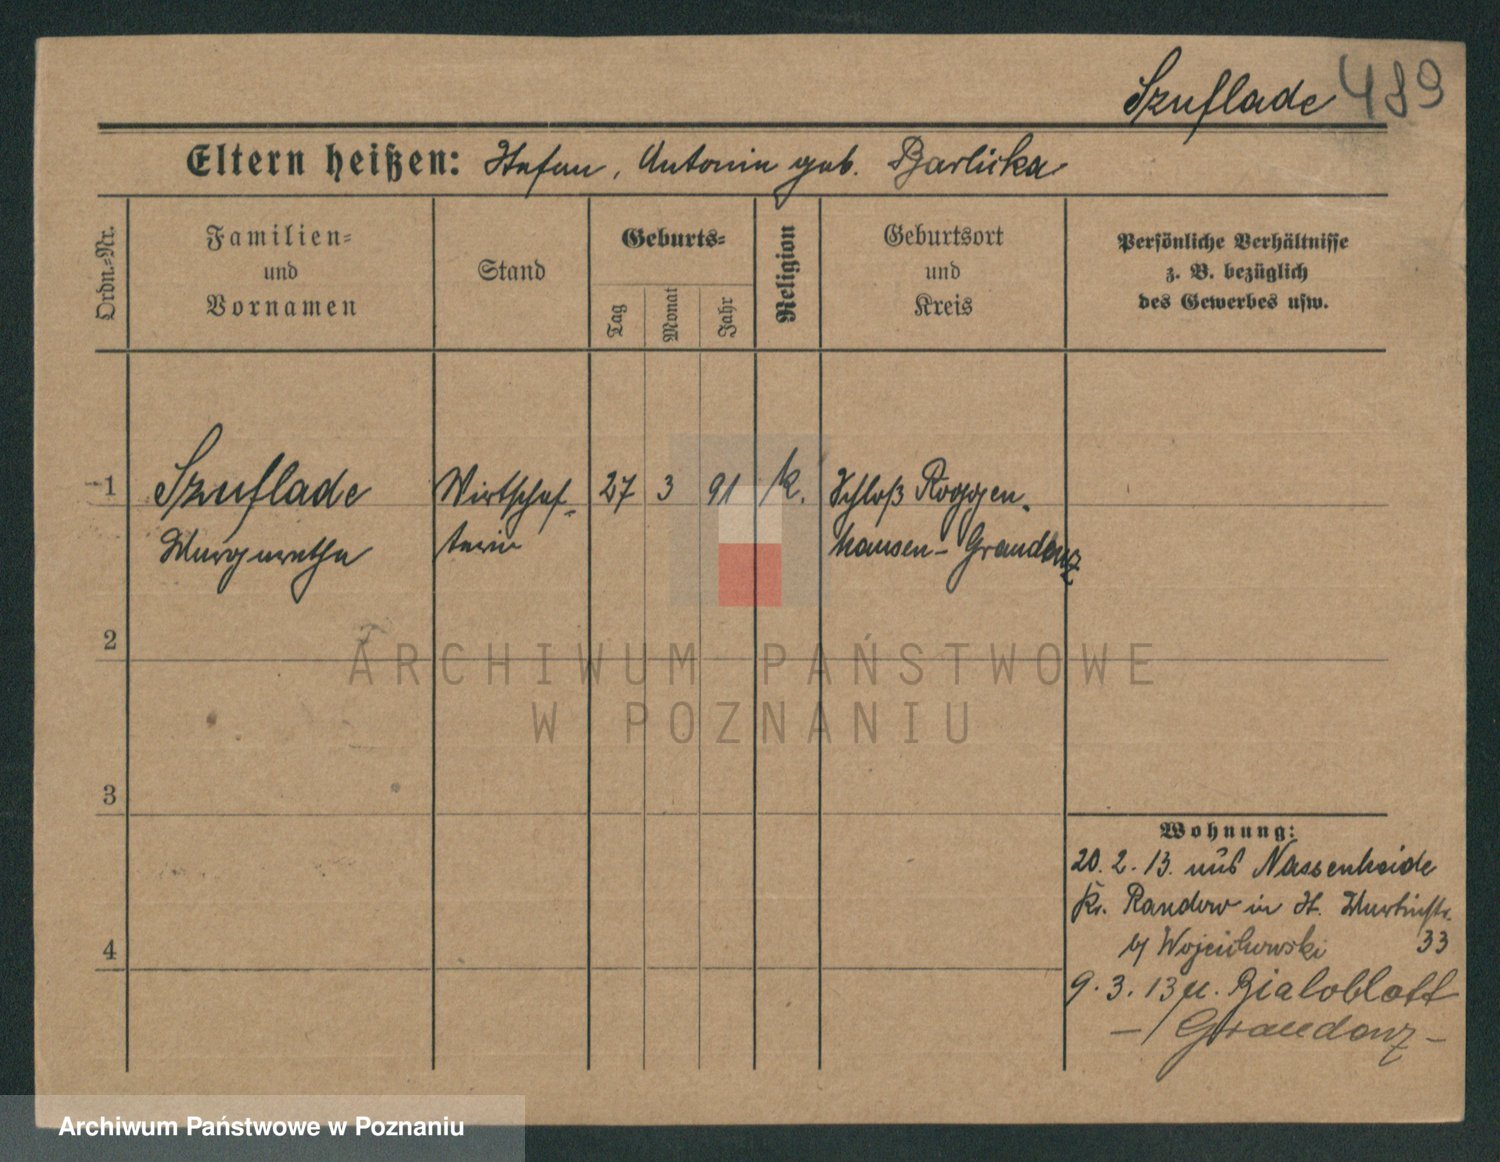 Szuflade 489
Eltern heißen: Stefan, Antonin geb. Barlicka
Ordn.=Nr.
Familien=
und
Vornamen
Stand
Geburts=
Tag
Monat
Jahr
Religion
Geburtsort
und
Kreis
Persönliche Verhältnisse
z. B. bezüglich
des Gewerbes usw.
1 Szuflade Wirtschaf- 27 3 91 k. Schloß Roggen-
Margarethe terin hausen - Graudenz
2
ARCHIWUM PAŃSTWOWE
W POZNANIU
3
4
Wohnung:
20. 2. 13. aus Nassenheide
Kr. Randow in St. Martinstr.
b/ Wojciechowski 33
9. 3. 13 n. Bialoblott
- / Graudenz -
Archiwum Państwowe w Poznaniu